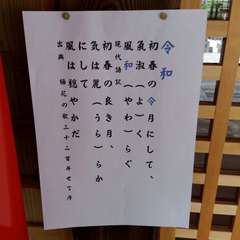 令和
初春の令月にして、
氣淑(よ)く
風和(やわ)らぐ
現代語訳
初春の良き月、
気は麗(うら)らか
にして
風は穏やかだ
出典 梅花の歌三十二首并せて序